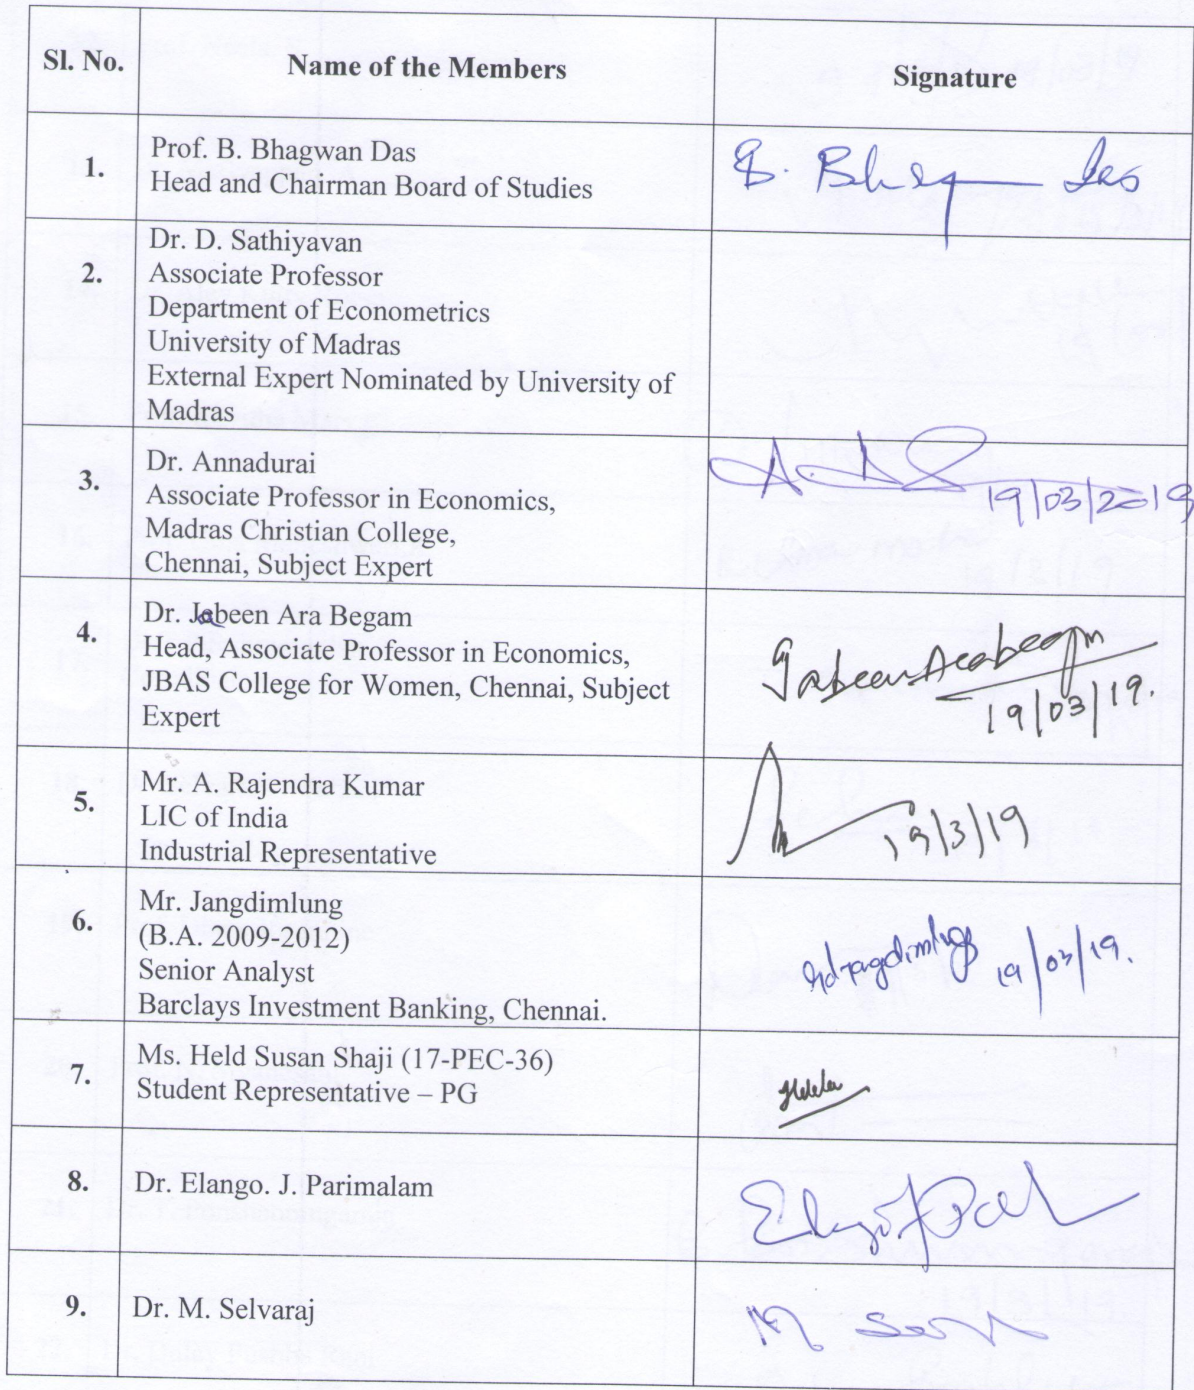 Sl. No. Name of the Members Signature
1. Prof. B. Bhagwan Das
Head and Chairman Board of Studies
B. Bhag Das
2. Dr. D. Sathiyavan
Associate Professor
Department of Econometrics
University of Madras
External Expert Nominated by University of
Madras
3. Dr. Annadurai
Associate Professor in Economics,
Madras Christian College,
Chennai, Subject Expert
19/03/2019
4. Dr. Jabeen Ara Begam
Head, Associate Professor in Economics,
JBAS College for Women, Chennai, Subject
Expert
JabeenArabegam
19/03/19.
5. Mr. A. Rajendra Kumar
LIC of India
Industrial Representative
19/3/19
6. Mr. Jangdimlung
(B.A. 2009-2012)
Senior Analyst
Barclays Investment Banking, Chennai.
19/03/19.
7. Ms. Held Susan Shaji (17-PEC-36)
Student Representative – PG
8. Dr. Elango. J. Parimalam
9. Dr. M. Selvaraj